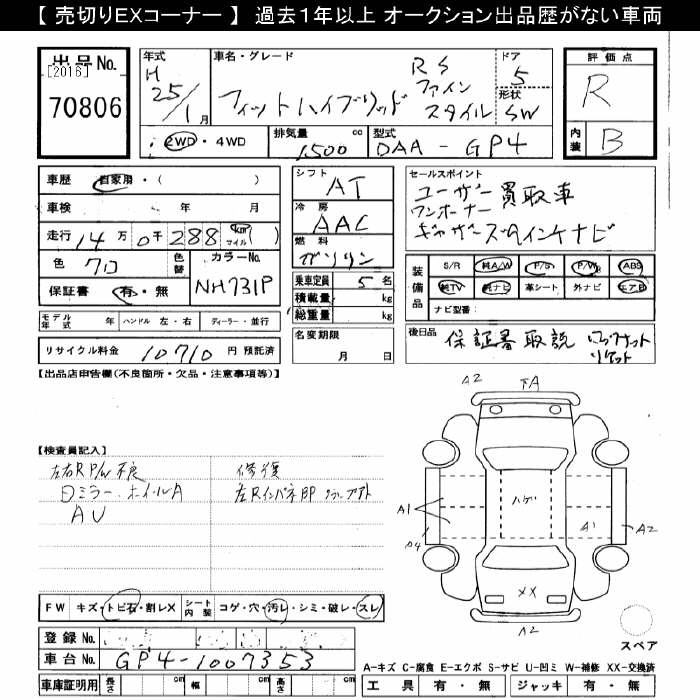 【 売切りEXコーナー 】 過去1年以上 オークション出品歴がない車両
出品No. 年式 車名・グレード ドア 評価点
[2016] H 25/1月 フィットハイブリッド RS ファインスタイル 5 R
70806 形状 SW
2WD・4WD 排気量 1500 cc 型式 DAA-GP4 内装 B
車歴 自家用・( ) シフト AT セールスポイント
車検 年 月 冷房 AAC ユーザー買取車
ワンオーナー
走行 14万0千288 km マイル ( ) 燃料 ガソリン ギャザズ ナビ
色 クロ 色替 カラーNo. NH731P
乗車定員 5 名 装備品 S/R 純A/W P/S P/W ABS
保証書 有・無 積載量 kg 純TV 純ナビ 革シート 外ナビ エアB
総重量 kg ナビ型番:
モデル年式 年 ハンドル 左・右 ディーラー・並行
名変期限 月 日 後日品 保証書 取説
リサイクル料金 10710 円 預託済
【出品店申告欄(不良箇所・欠品・注意事項等)】
A2 下A
【検査員記入】
左右RP/W不良 修復
Dミラー・ホイルA
AU
ハゲ
A1 A1 A2
A4
XX
A2
FW キズ・トビ石・割レX シート内装 コゲ・穴・汚レ・シミ・破レ・スレ
登録No. スペア
車台No. GP4-1007353
A-キズ C-腐食 E-エクボ S-サビ U-凹ミ W-補修 XX-交換済
車庫証明用 長さ cm 幅 cm 高さ cm 工具 有・無 ジャッキ 有・無